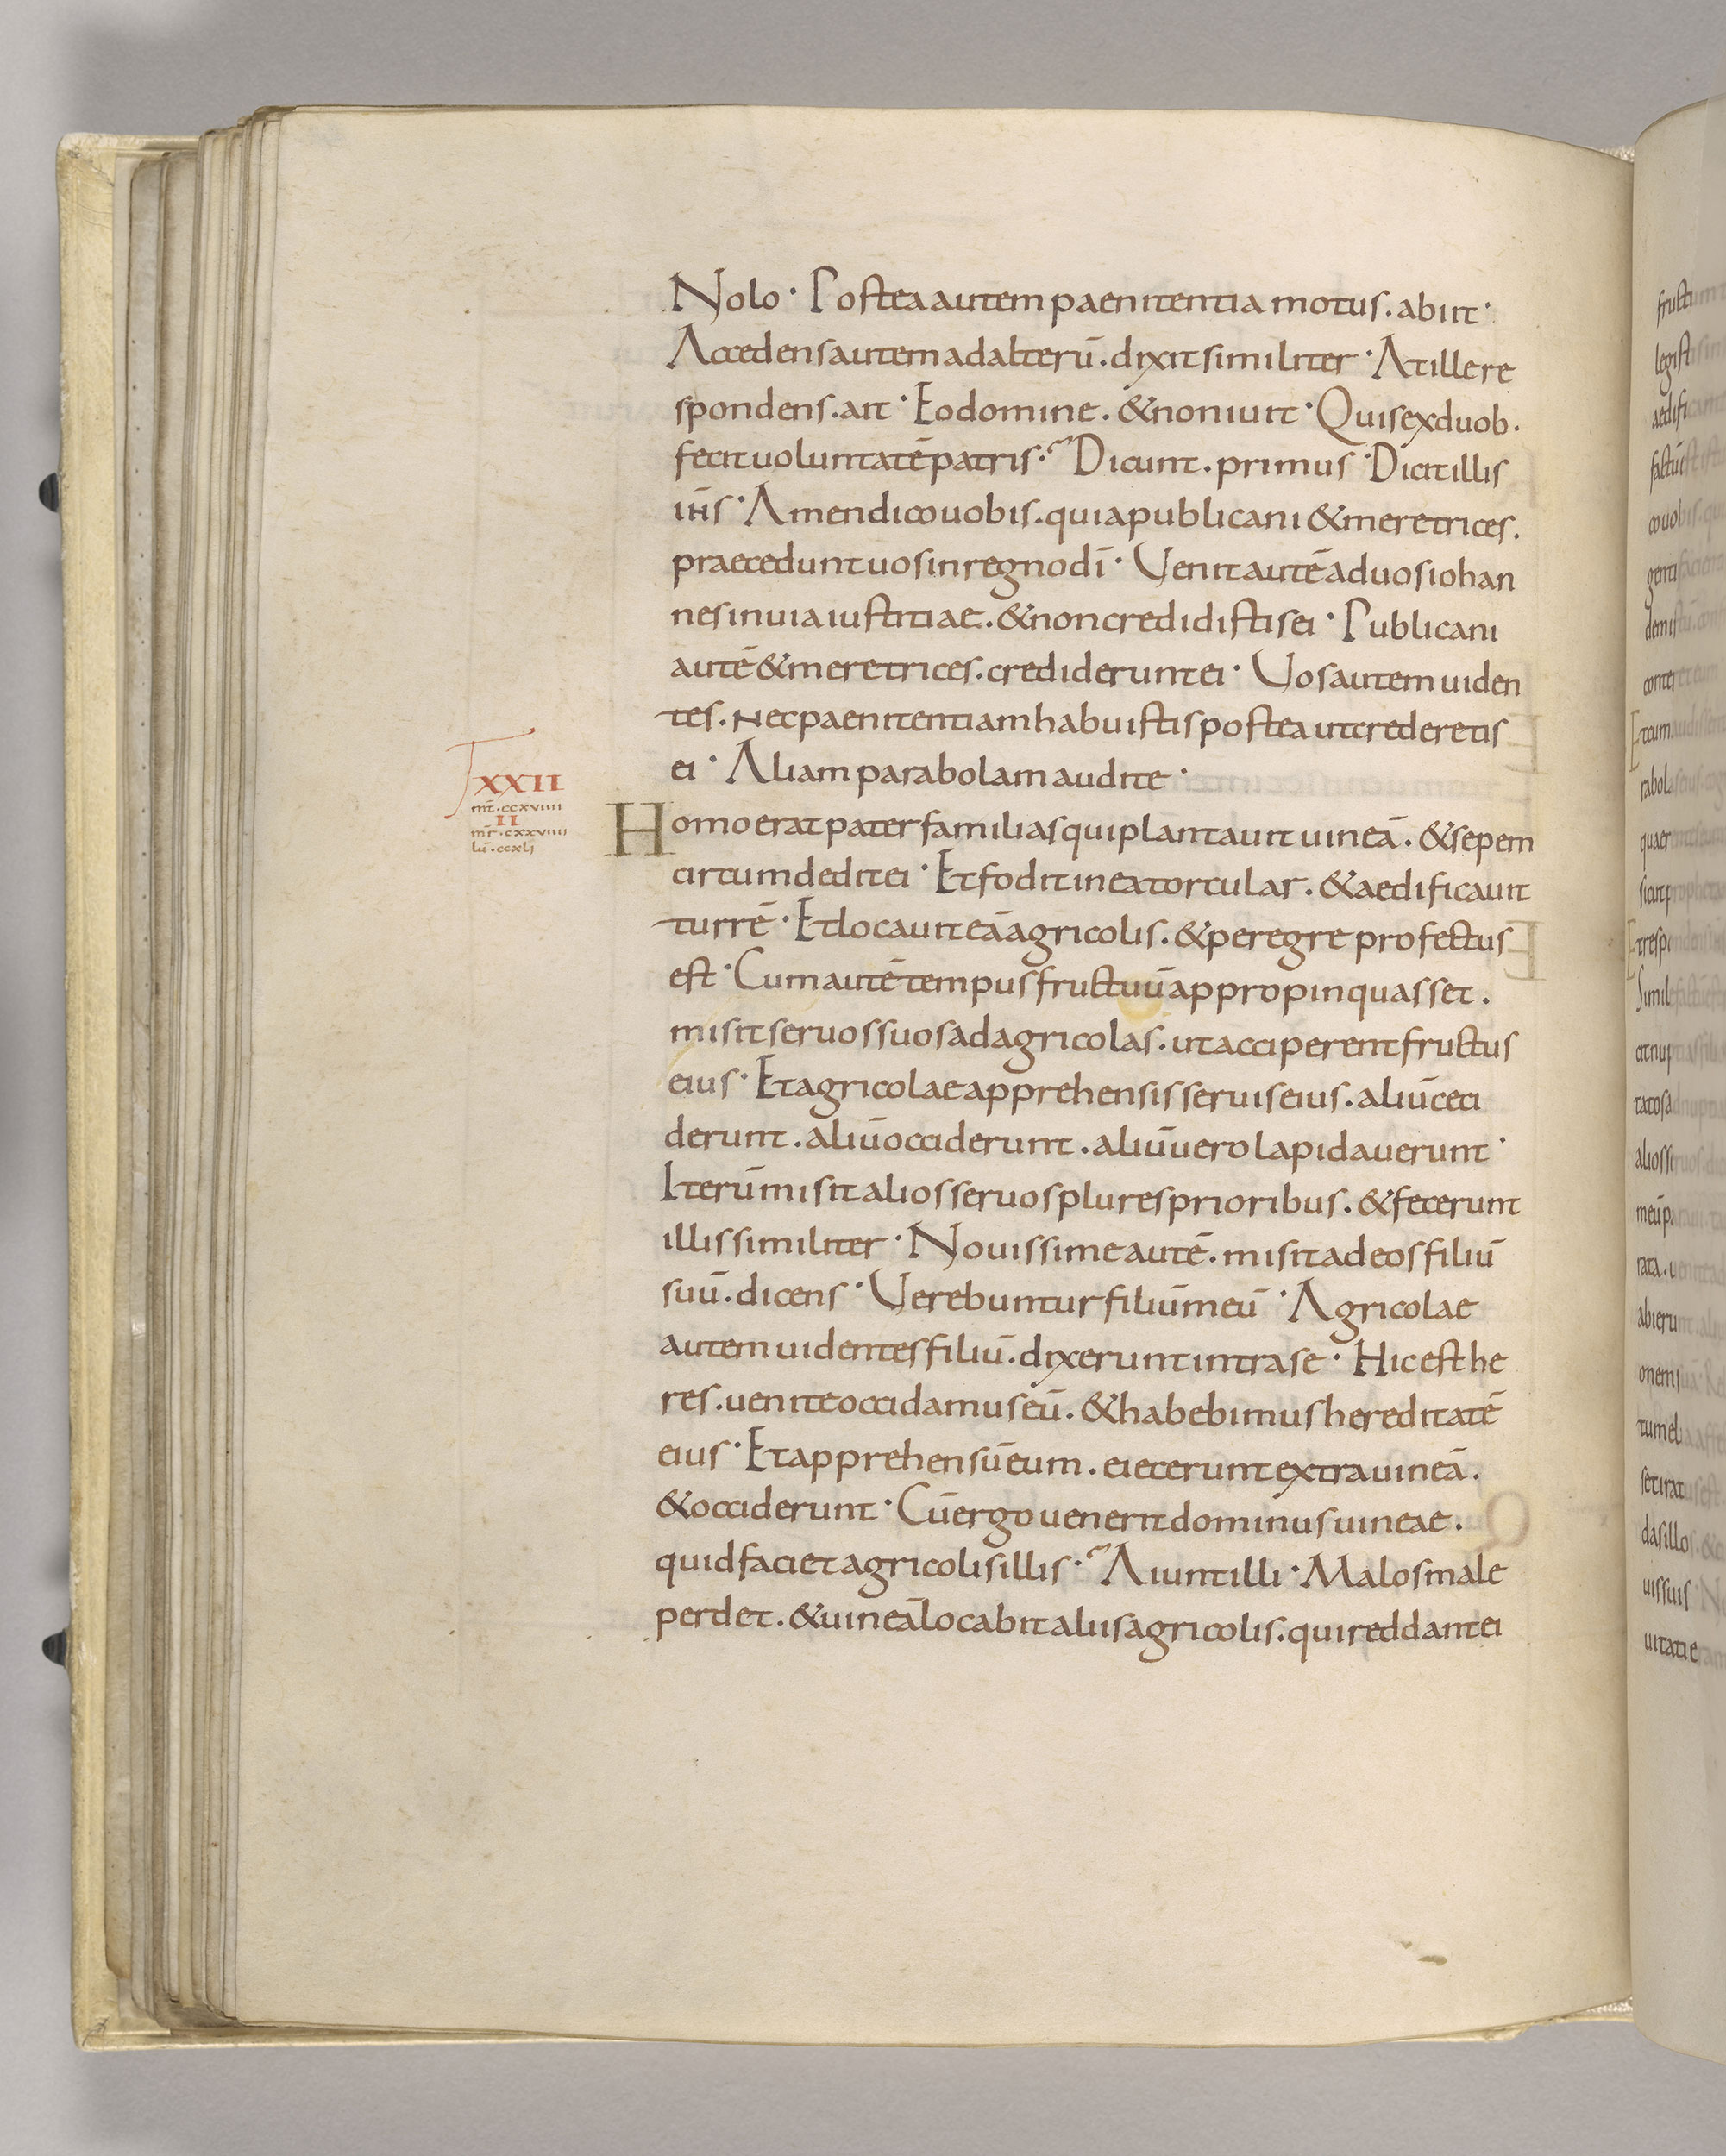 Nolo · Postea autem paenitentia motus . abiit ·
Accedens autem ad alterū . dixit similiter · At ille re
spondens . ait · Eo domine . & non iuit · Quis ex duob .
fecit uoluntatē patris · Dicunt . primus · Dicit illis
ihs̄ · Amen dico uobis . quia publicani & meretrices .
praecedunt uos in regno dī · Uenit autē ad uos iohan
nes in uia iustitiae . & non credidistis ei · Publicani
autē & meretrices . crediderunt ei · Uos autem uiden
tes . nec paenitentiam habuistis postea ut crederetis
ei · Aliam parabolam audite ·
XXII
mt̄ . ccxviiii
II
mr̄ . cxxviiii
lū . ccxlj
Homo erat pater familias qui plantauit uineā . & sepem
circumdedit ei · Et fodit in ea torcular . & aedificauit
turrē · Et locauit eā agricolis . & peregre profectus
est · Cum autē tempus fructuū appropinquasset .
misit seruos suos ad agricolas . ut acciperent fructus
eius · Et agricolae apprehensis seruis eius . aliū ceci
derunt . aliū occiderunt . aliū uero lapidauerunt ·
Iterū misit alios seruos plures prioribus . & fecerunt
illis similiter · Nouissime autē . misit ad eos filiū
suū . dicens · Uerebuntur filiū meū · Agricolae
autem uidentes filiū . dixerunt intra se · Hic est he
res . uenite occidamus eū . & habebimus hereditatē
eius · Et apprehensū eum . eiecerunt extra uineā .
& occiderunt · Cū ergo uenerit dominus uineae .
quid faciet agricolis illis · Aiunt illi · Malos male
perdet . & uineā locabit aliis agricolis . qui reddant ei